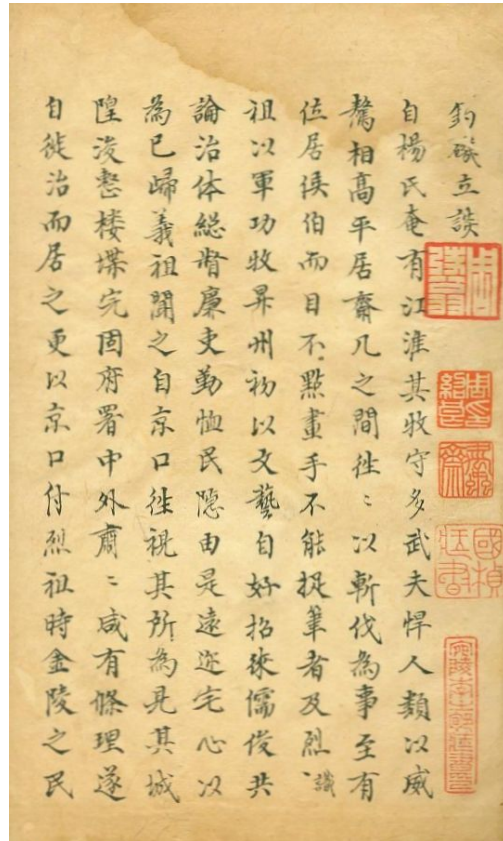 釣磯立談
自楊氏奄有江淮其牧守多武夫悍人類以威
驁相高平居齋几之間往〻以斬伐為事至有
位居侯伯而目不點畫手不能捉筆者及烈
識
祖以軍功牧昇州初以文藝自好招徠儒俊共
論治体總督廉吏勤恤民隱由是遠迩宅心以
為已歸義祖聞之自京口往視其所為見其城
隍浚整楼堞完固府署中外肅〻咸有條理遂
自徙治而居之更以京口付烈祖時金陵之民
國楨藏書
宛陵李之郇藏書印